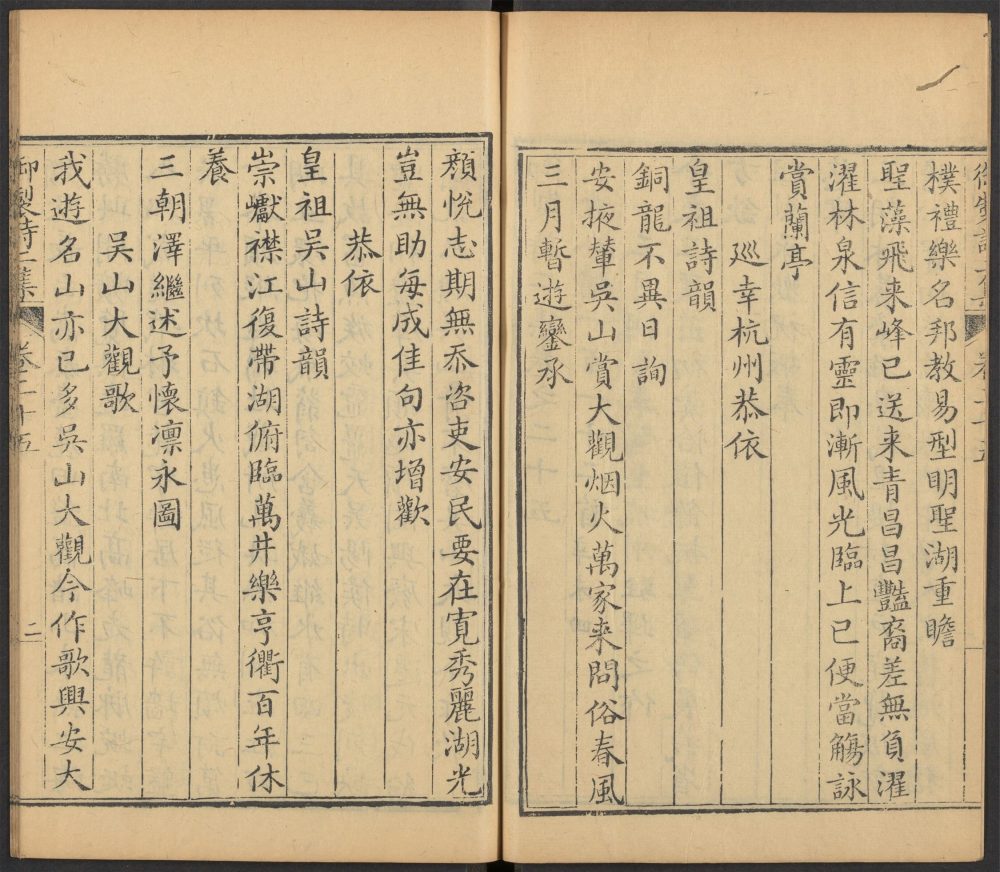 樸禮樂名邦教易型明聖湖重瞻
聖藻飛来峰已送来青昌昌豔裔差無負濯
濯林泉信有靈即漸風光臨上已便當觴詠
賞蘭亭
巡幸杭州恭依
皇祖詩韻
銅龍不異日詢
安掖輦吳山賞大觀烟火萬家来問俗春風
三月暫遊鑾承
顔悅志期無忝咨吏安民要在寛秀麗湖光
豈無助每成佳句亦增歡
恭依
皇祖吳山詩韻
崇巘襟江復帶湖俯臨萬井樂亨衢百年休
養
三朝澤繼述予懷凛永圖
吳山大觀歌
我遊名山亦已多吳山大觀今作歌興安大
御製詩二集 卷二十五 二